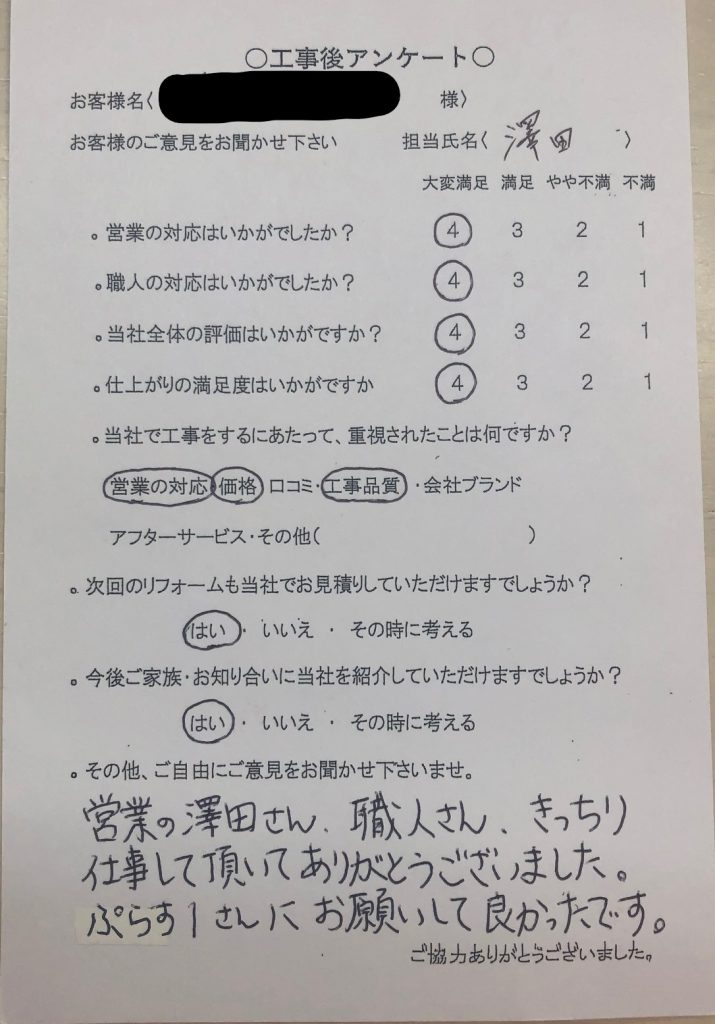 ○工事後アンケート○
お客様名〈 様〉
お客様のご意見をお聞かせ下さい 担当氏名〈 澤田 〉
大変満足 満足 やや不満 不満
。営業の対応はいかがでしたか? 4 3 2 1
。職人の対応はいかがでしたか? 4 3 2 1
。当社全体の評価はいかがですか? 4 3 2 1
。仕上がりの満足度はいかがですか 4 3 2 1
。当社で工事をするにあたって、重視されたことは何ですか?
営業の対応・価格・口コミ・工事品質・会社ブランド
アフターサービス・その他( )
。次回のリフォームも当社でお見積りしていただけますでしょうか?
はい・ いいえ ・ その時に考える
。今後ご家族・お知り合いに当社を紹介していただけますでしょうか?
はい・ いいえ ・ その時に考える
。その他、ご自由にご意見をお聞かせ下さいませ。
営業の澤田さん、職人さん、きっちり
仕事して頂いてありがとうございました。
ぷらす1さんにお願いして良かったです。
ご協力ありがとうございました。